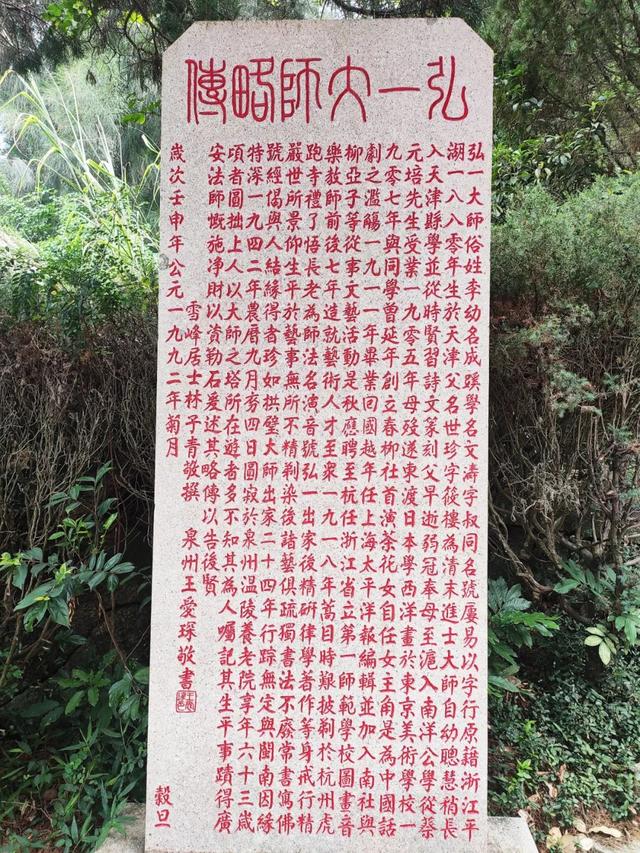 弘一大師略傳
弘一大師俗姓李幼名成蹊學名文濤字叔同名號屢易以字行原籍浙江平
湖一八八零年生於天津父名世珍字筱樓為清末進士大師自幼聰慧稍長
入天津縣學並從時賢習詩文篆刻父早逝弱冠奉母至滬入南洋公學從蔡
元培先生受業一九零五年母歿遂東渡日本學西洋畫於東京美術學校一
九零七年與同學曾延年創立春柳社首演茶花女自任女主角是為中國話
劇之濫觴一九一一年畢業回國越年任上海太平洋報編輯並加入南社與
柳亞子等從事文藝活動是秋應聘至杭任浙江省立第一師範學校圖畫音
樂教師前後七年造就藝術人才至眾一九一八年蒿目時艱披剃於杭州虎
跑寺禮了悟長老為師法名演音號弘一出家後精研律學著作等身戒行精
嚴世所景仰生平於藝事無所不精剃染後諸藝俱疏獨書法不廢常書寫佛
號經偈與人結緣得者珍如拱璧大師出家二十四年行踪無定與閩南因緣
特深一九四二年農曆九月初四日圓寂於泉州温陵養老院享年六十三歲
頃者圓拙上人以大師之塔所在遊者多不知其為人囑記其生平事蹟得廣
安法師慨施净財以資勒石爰述其略傳以告後賢
雪峰居士林子青敬撰 泉州王愛琛敬書
歲次壬申年公元一九九二年菊月 穀旦